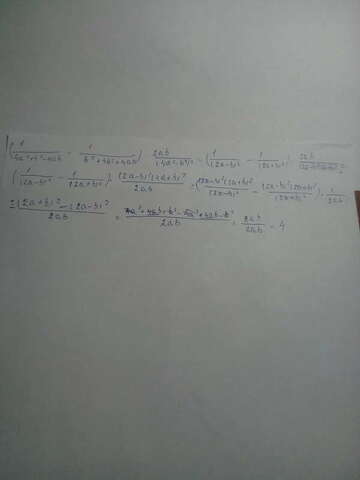 (1/4a²+b²-4ab - 1/b²+4a²+4ab) : 2ab/(4a²-b²)² = (1/(2a-b)² - 1/(2a+b)²) : 2ab
(1/(2a-b)² - 1/(2a+b)²) · (2a-b)²(2a+b)²/2ab = ((2a-b)²(2a+b)²/(2a-b)² - (2a-b)²(2a+b)²/(2a+b)²) · 1/2ab
= (2a+b)² - (2a-b)²/2ab = 4a²+4ab+b²-4a²+4ab-b²/2ab = 8ab/2ab = 4